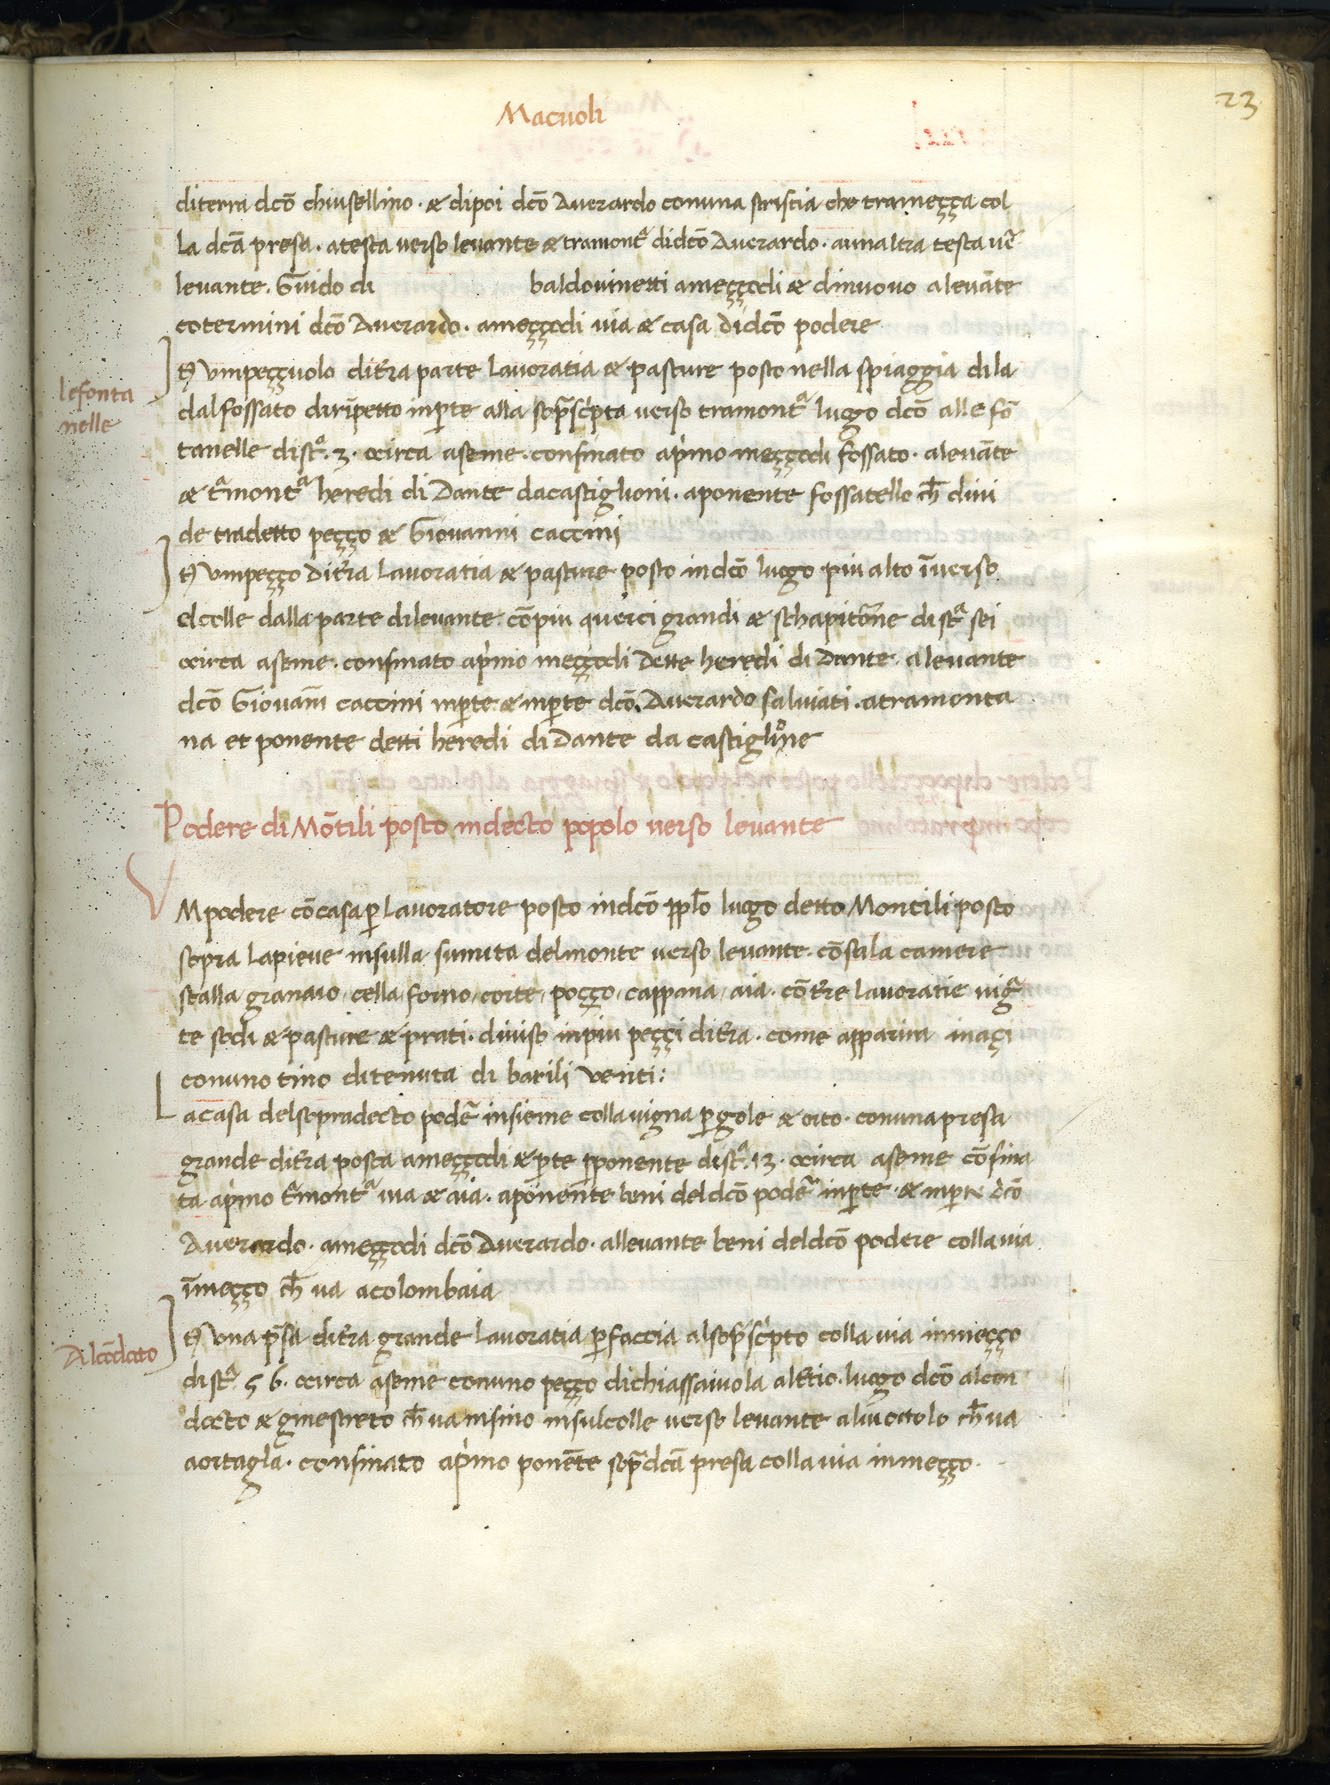 23
Macuoli
diterra dcō chiusellino · & dipoi dcō Auerardo conuna striscia che trameçça col
la dcā presa · atesta uerso leuante & tramontª didcō Auerardo · aunaltra testa uē
leuante · Guido di baldouinetti ameççodi & dinuouo aleuāte
cotermini dcō Auerardo · ameççodi uia & casa didcō podere
lefonta
nelle
Et vmpeççuolo diťra parte lauoratia & pasture posto nella spiaggia dila
dalfossato dirīpetto inpte alla sopͣscͥpta uerso tramontª luogo dcō alle fō
tanelle distª · 3 · ocirca aseme · confinato apͥmo meççodi fossato · aleuāte
& tͣmontª heredi di Dante dacastiglioni · aponente fossatello ch̄ diui
de tradetto peçço & Giouanni caccini
Et vmpeçço diťra lauoratia & pasture posto indcō luogo piu alto īuerso
elcolle dalla parte dileuante cōpiu querci grandi & schapitōne distª sei
ocirca aseme · confinato apͥmo meççodi dette heredi di Dante · aleuante
dcō Giouāni caccini inpte & inpte dcō Auerardo saluiati · atramonta
na et ponente detti heredi di Dante da castiglͥone
Podere di Mōtili posto indecto popolo uerso leuante
VMpodere cōcasa ꝑ lauoratore posto indcō ppl̄o luogo detto Montili posto
sopra lapieue insulla sumita delmonte uerso leuante · cōsala camere
stalla granaio · cella · forno · corte · poçço · cappana · aia · cō ťre lauoratie uigͣ
te sodi & pasture & prati · diuiso inpiu peççi diťra · come apparira inaçi
conuno tino ditenuta di barili uenti:
Lacasa delsopradecto poderͤ insieme colla uigna ꝑgole & orto · conuna presa
grande diťra posta ameççodi & pte pponente distª · 13 · ocirca aseme cōfina
ta apͥmo tͣmontª uia & aia · aponente beni deldcō poderͤ inpte · & inpte dcō
Auerardo · ameççodi dcō Auerardo · alleuante beni deldcō podere colla uia
īmeçço ch̄ ua acolombaia
Alcōdoto
Et vna pͤsa diťra grande lauoratia ꝑ faccia alsopͣscͥpto colla uia inmeçço
distª · 56 · ocirca aseme conuno peçço dichiassaiuola alťtio · luogo dcō alcon
docto & ginestreto ch̄ ua insino insulcolle uerso leuante aluiottolo ch̄ ua
aortaglia · confinato apͥmo ponēte sopͣdcā presa colla uia inmeçço ·